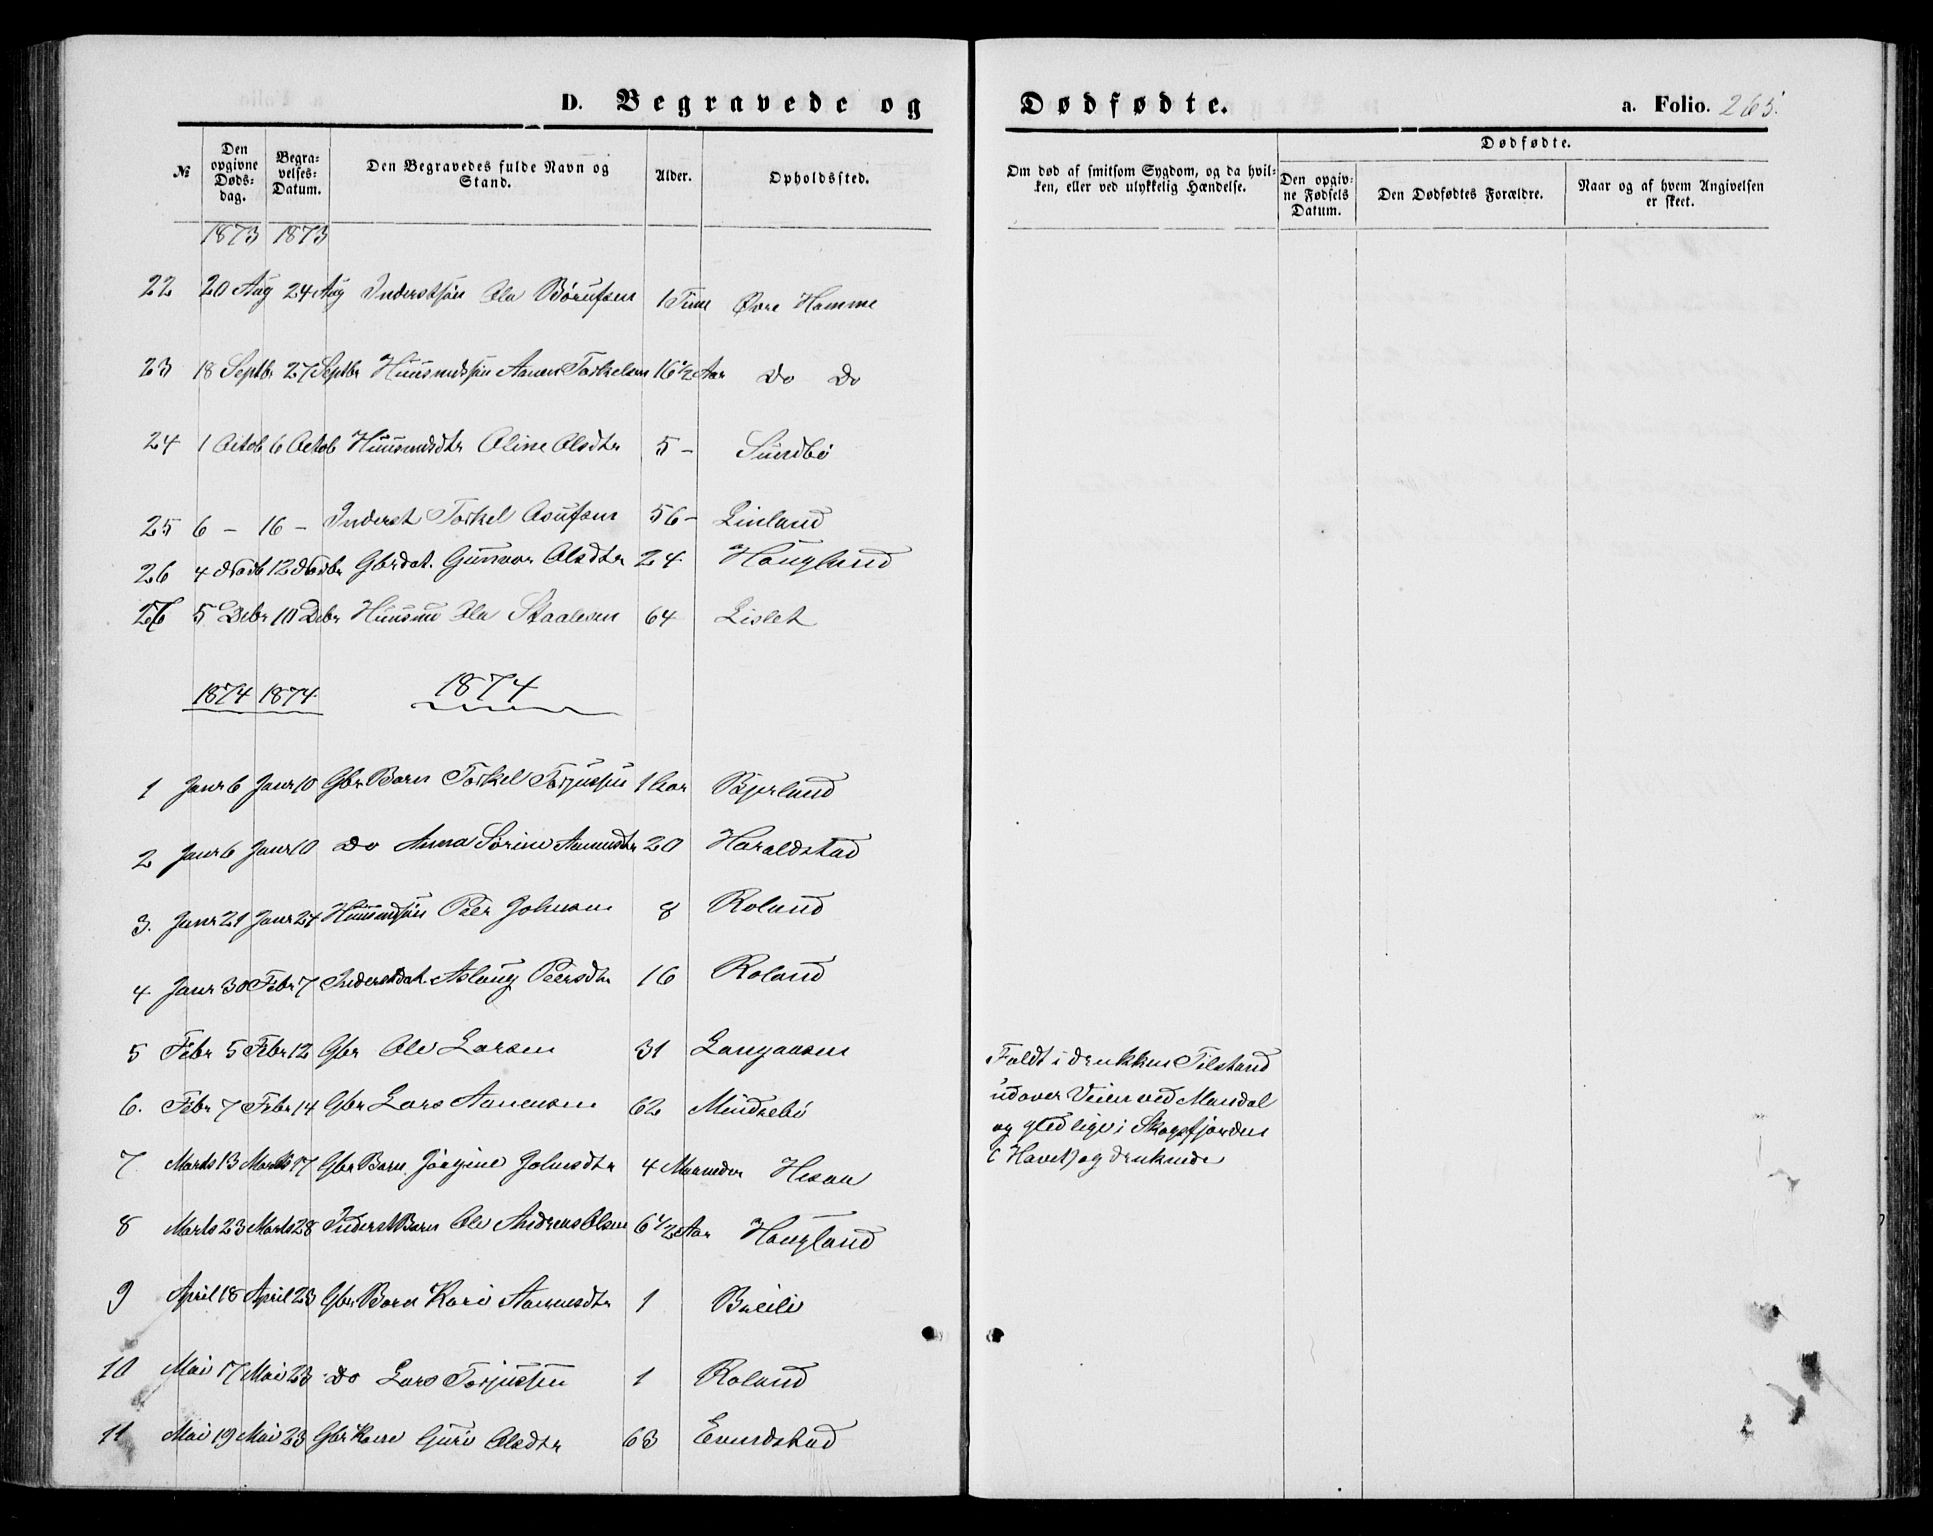 D. Begravede og Dødfødte.
a. Folio. 265.
№
Den opgivne Døds-dag.
Begra-velses-Datum.
Den Begravedes fulde Navn og Stand.
Alder.
Opholdssted.
Om død af smitsom Sygdom, og da hvil-ken, eller ved ulykkelig Hændelse.
Dødfødte.
Den opgiv-ne Fødsels Datum.
Den Dødfødtes Forældre.
Naar og af hvem Angivelsen er skeet.
1873 1873
22 20 Aug 24 Aug Inderstsøn Ola 1 Time Øvre Homme
23 18 Septbr 27 Septbr Huusmdsøn Aanen Torkelsen 16 1/2 Aar Do Do
24 1 Octob 6 Octob Huusmdsdtr Oline Olsdtr 5 – Sundbø
25 6 – 16 – Inderst Torkel 56 – Linland
26 4 Novb 12 Novbr Gbrdat. Gunvor Olsdtr 24 Hougland
27 5 Debr 10 Debr Huusmd Ola Staalesen 64 Lislet
1874 1874 1874
1 Janr 6 Janr 10 Gbr Barn Torkel Torjussen 1 Aar Bjerland
2 Janr 6 Janr 10 Do Anna Sørine Aanensdtr 20 Haraldstad
3. Janr 21 Janr 27 Huusmdsøn Peer Johnsen 8 Roland
4 Janr 30 Febr 7 Inderstdat. Aslaug Peersdtr 16 Roland
5 Febr 5 Febr 12 Gbr Ole Larsen 31 Langaasen
Faldt i drukken Tilstand
udover Veien ved Mandal
og gled lige i Skogsfjorden
(Havet) og druknede
6. Febr 7 Febr 14 Gbr Lars Aanensen 62 Mindrebø
7 Marts 13 Marts 17 Gbr Barn Jørgine Johnsdtr 4 Maaneder Hesaa
8 Marts 23 Marts 28 Inderst Barn Ole Andreas Olsen 6 1/2 Aar Hougland
9 April 18 April 23 Gbr Barn Kari Aanensdtr 1 Breili
10 Mai 17 Mai 23 Do Lars Torjussen 1 Roland
11 Mai 19 Mai 23 Gbr Kone Guro Olsdtr 63 Evindstad